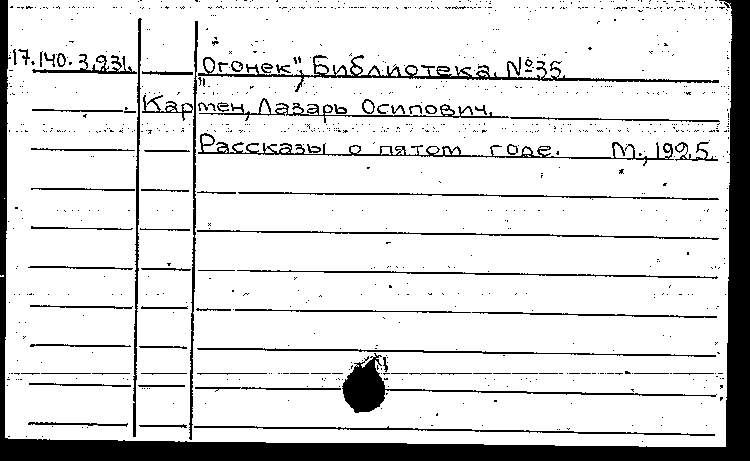 17.140.3.231. "Огонек", Библиотека. №35.
Кармен, Лазарь Осипович.
Рассказы о пятом годе. М., 1925.